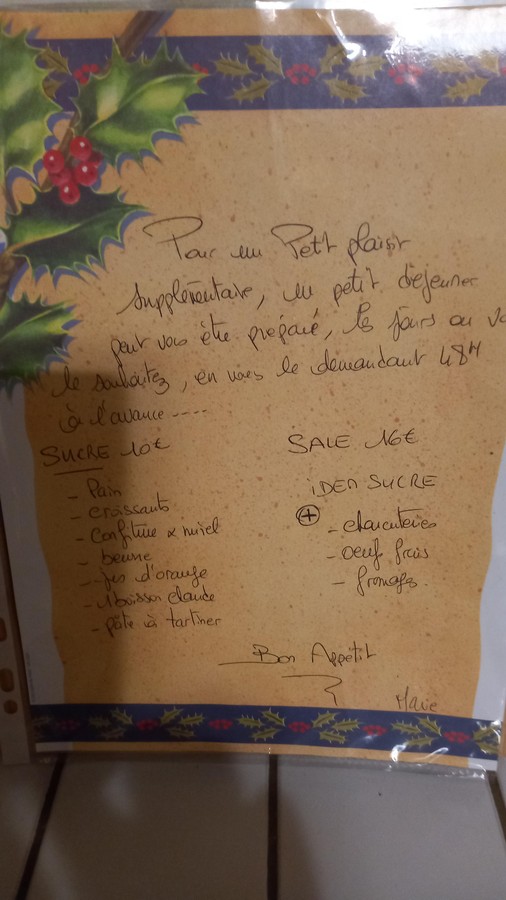 Pour un Petit plaisir
supplémentaire, un petit déjeuner
peut vous être préparé, les jours ou vo
le souhaitez, en vous le demandant 48H
à l'avance ----
SUCRE 10€
- Pain
- croissants
- confiture & miel
- beurre
- jus d'orange
- 1 boisson chaude
- pâte à tartiner
SALE 16€
iDEM SUCRE
+ - charcuteries
- oeuf frais
- fromages.
Bon Appétit
Marie